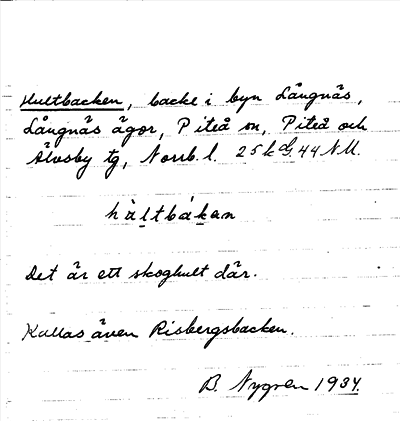 Hultbacken, backe i byn Långnäs,
Långnäs ägor, Piteå sn, Piteå och
Älvsby tg, Norrb. l. 25k G. 44 N.M.
hàltbákan
Det är ett skoghult där.
Kallas även Risbergsbacken.
B. Nygren 1934.